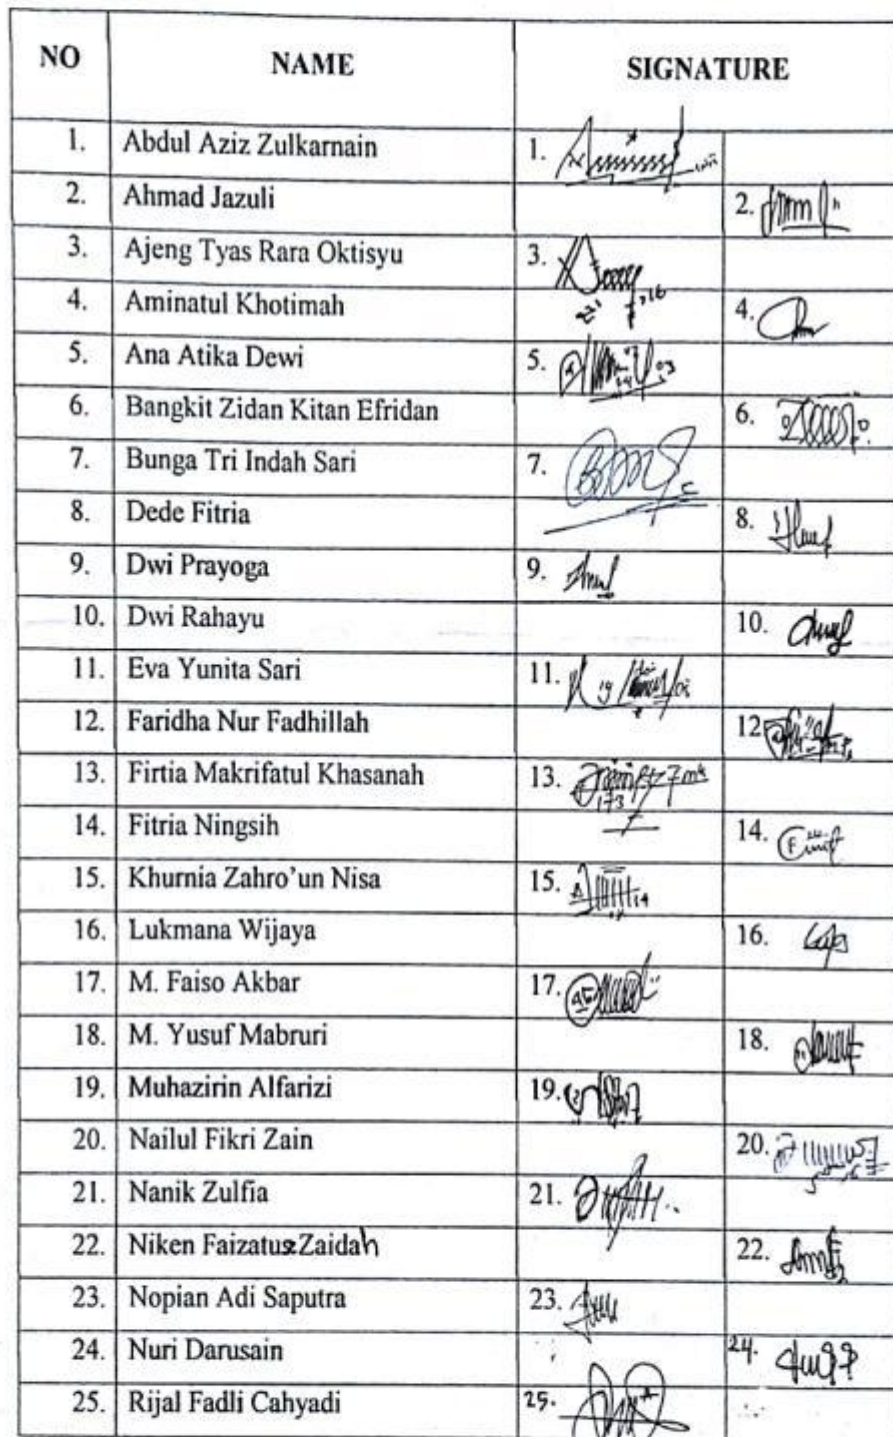 NO NAME SIGNATURE
1. Abdul Aziz Zulkarnain 1.
2. Ahmad Jazuli 2.
3. Ajeng Tyas Rara Oktisyu 3.
4. Aminatul Khotimah 4.
5. Ana Atika Dewi 5.
6. Bangkit Zidan Kitan Efridan 6.
7. Bunga Tri Indah Sari 7.
8. Dede Fitria 8.
9. Dwi Prayoga 9.
10. Dwi Rahayu 10.
11. Eva Yunita Sari 11.
12. Faridha Nur Fadhillah 12
13. Firtia Makrifatul Khasanah 13.
14. Fitria Ningsih 14.
15. Khurnia Zahro'un Nisa 15.
16. Lukmana Wijaya 16.
17. M. Faiso Akbar 17.
18. M. Yusuf Mabruri 18.
19. Muhazirin Alfarizi 19.
20. Nailul Fikri Zain 20.
21. Nanik Zulfia 21.
22. Niken Faizatuz Zaidah 22.
23. Nopian Adi Saputra 23.
24. Nuri Darusain 24.
25. Rijal Fadli Cahyadi 25.